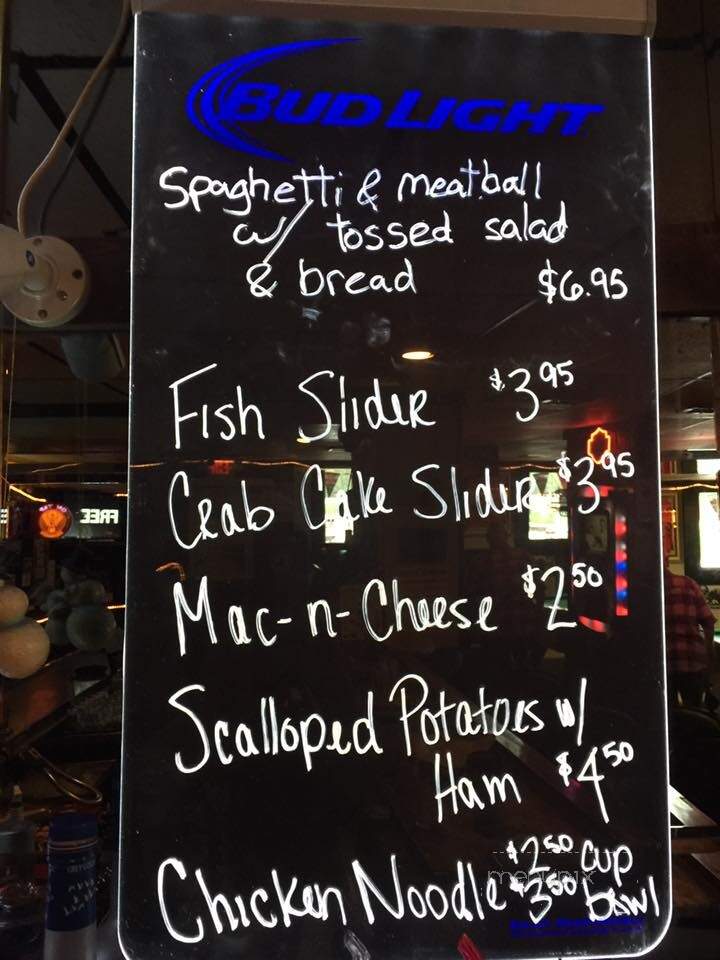 BUD LIGHT
Spaghetti & meatball
w/ tossed salad
& bread $6.95
Fish Slider $3.95
Crab Cake Slider $3.95
Mac-n-Cheese $2.50
Scalloped Potatoes w/
Ham $4.50
$2.50 cup
Chicken Noodle $3.50 bowl
FREE
menupix